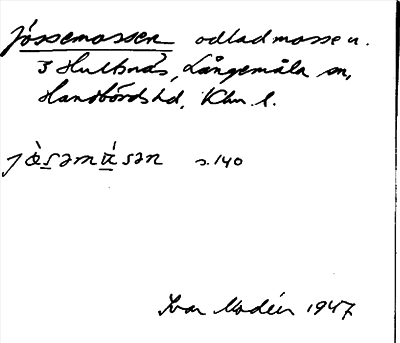 Jössemossen odlad mosse u.
3 Hultsnäs, Långemåla sn,
Handbörds hd, Klm. l.
s. 140
Ivar Modéer 1947